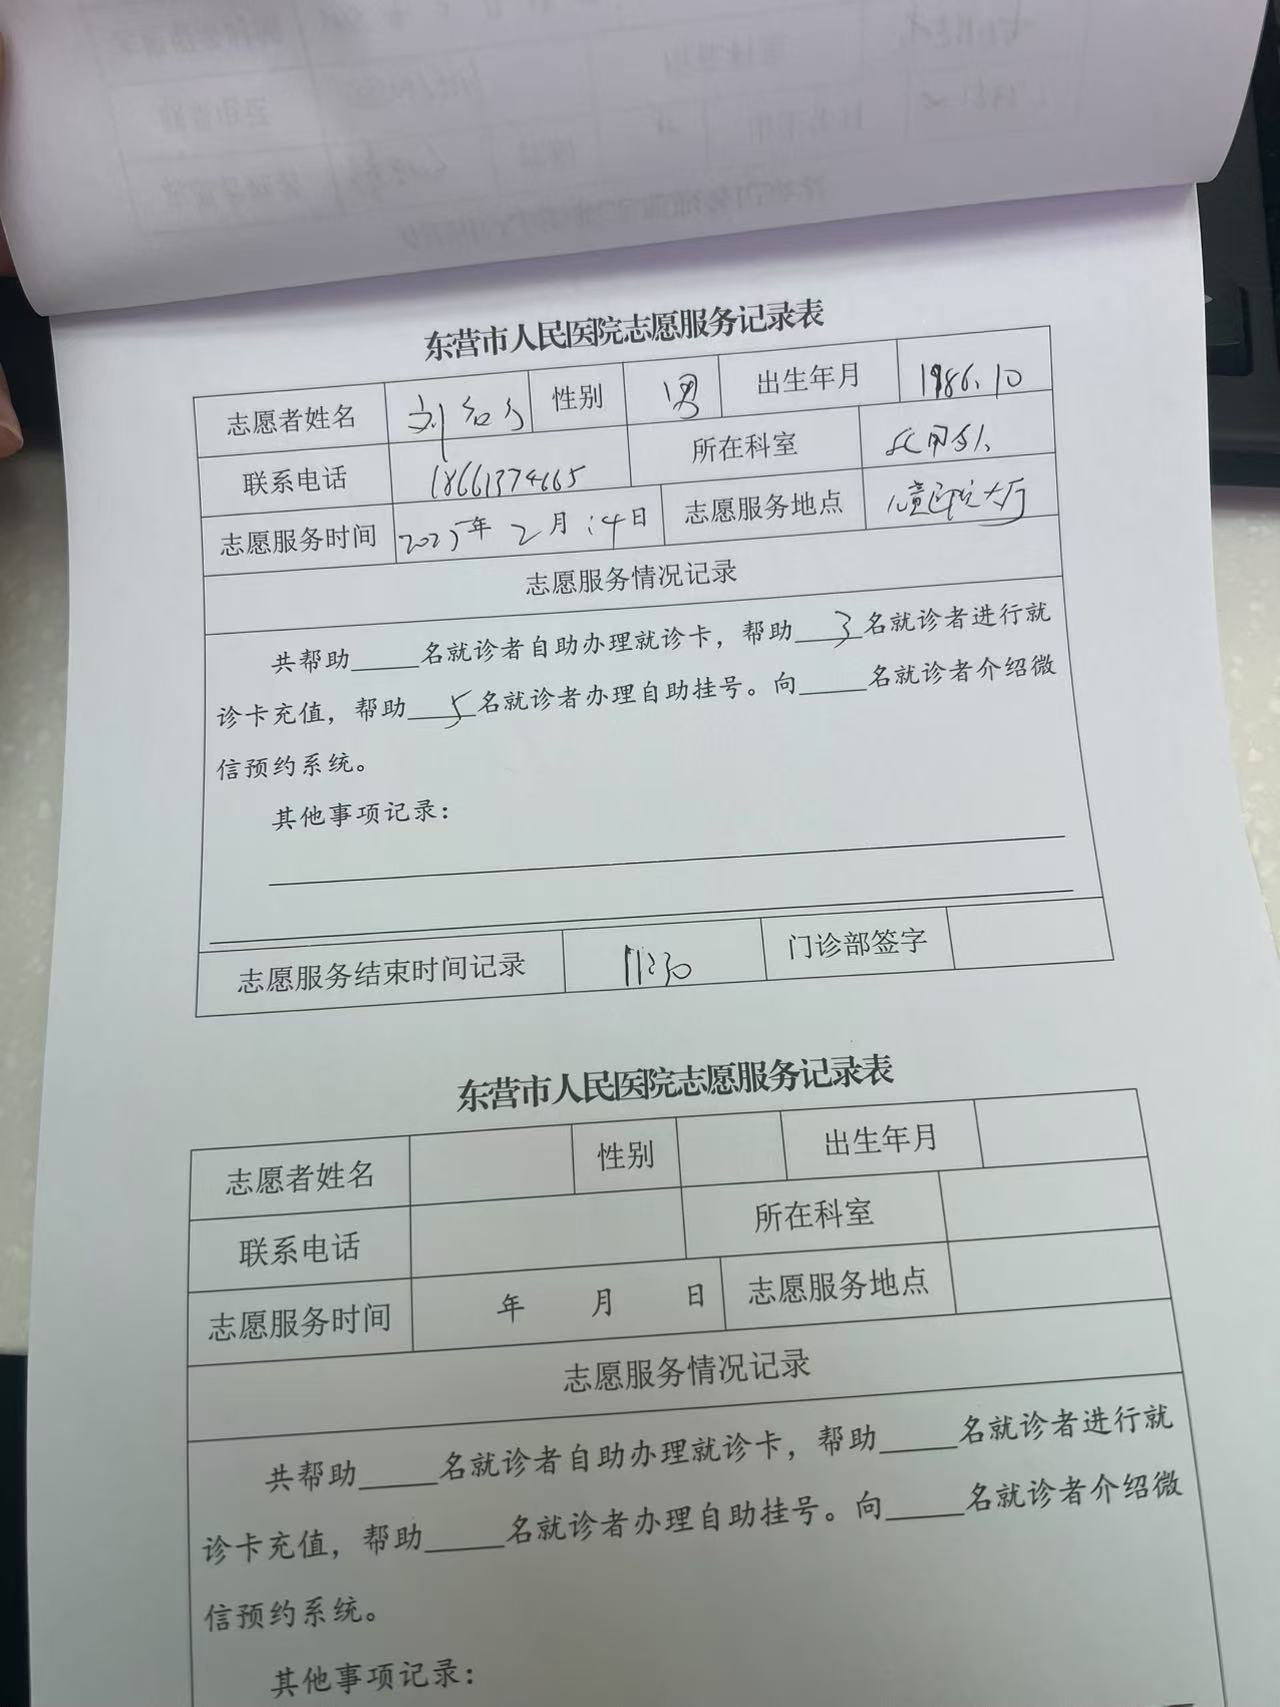 东营市人民医院志愿服务记录表
志愿者姓名 刘 性别 男 出生年月 1986.10
联系电话 18661374665 所在科室
志愿服务时间 2025年 2月 14日 志愿服务地点 儿童医院大厅
志愿服务情况记录
共帮助_____名就诊者自助办理就诊卡，帮助__3__名就诊者进行就
诊卡充值，帮助__5__名就诊者办理自助挂号。向_____名就诊者介绍微
信预约系统。
其他事项记录：
志愿服务结束时间记录 11:30 门诊部签字
东营市人民医院志愿服务记录表
志愿者姓名 性别 出生年月
联系电话 所在科室
志愿服务时间 年 月 日 志愿服务地点
志愿服务情况记录
共帮助_____名就诊者自助办理就诊卡，帮助_____名就诊者进行就
诊卡充值，帮助_____名就诊者办理自助挂号。向_____名就诊者介绍微
信预约系统。
其他事项记录：